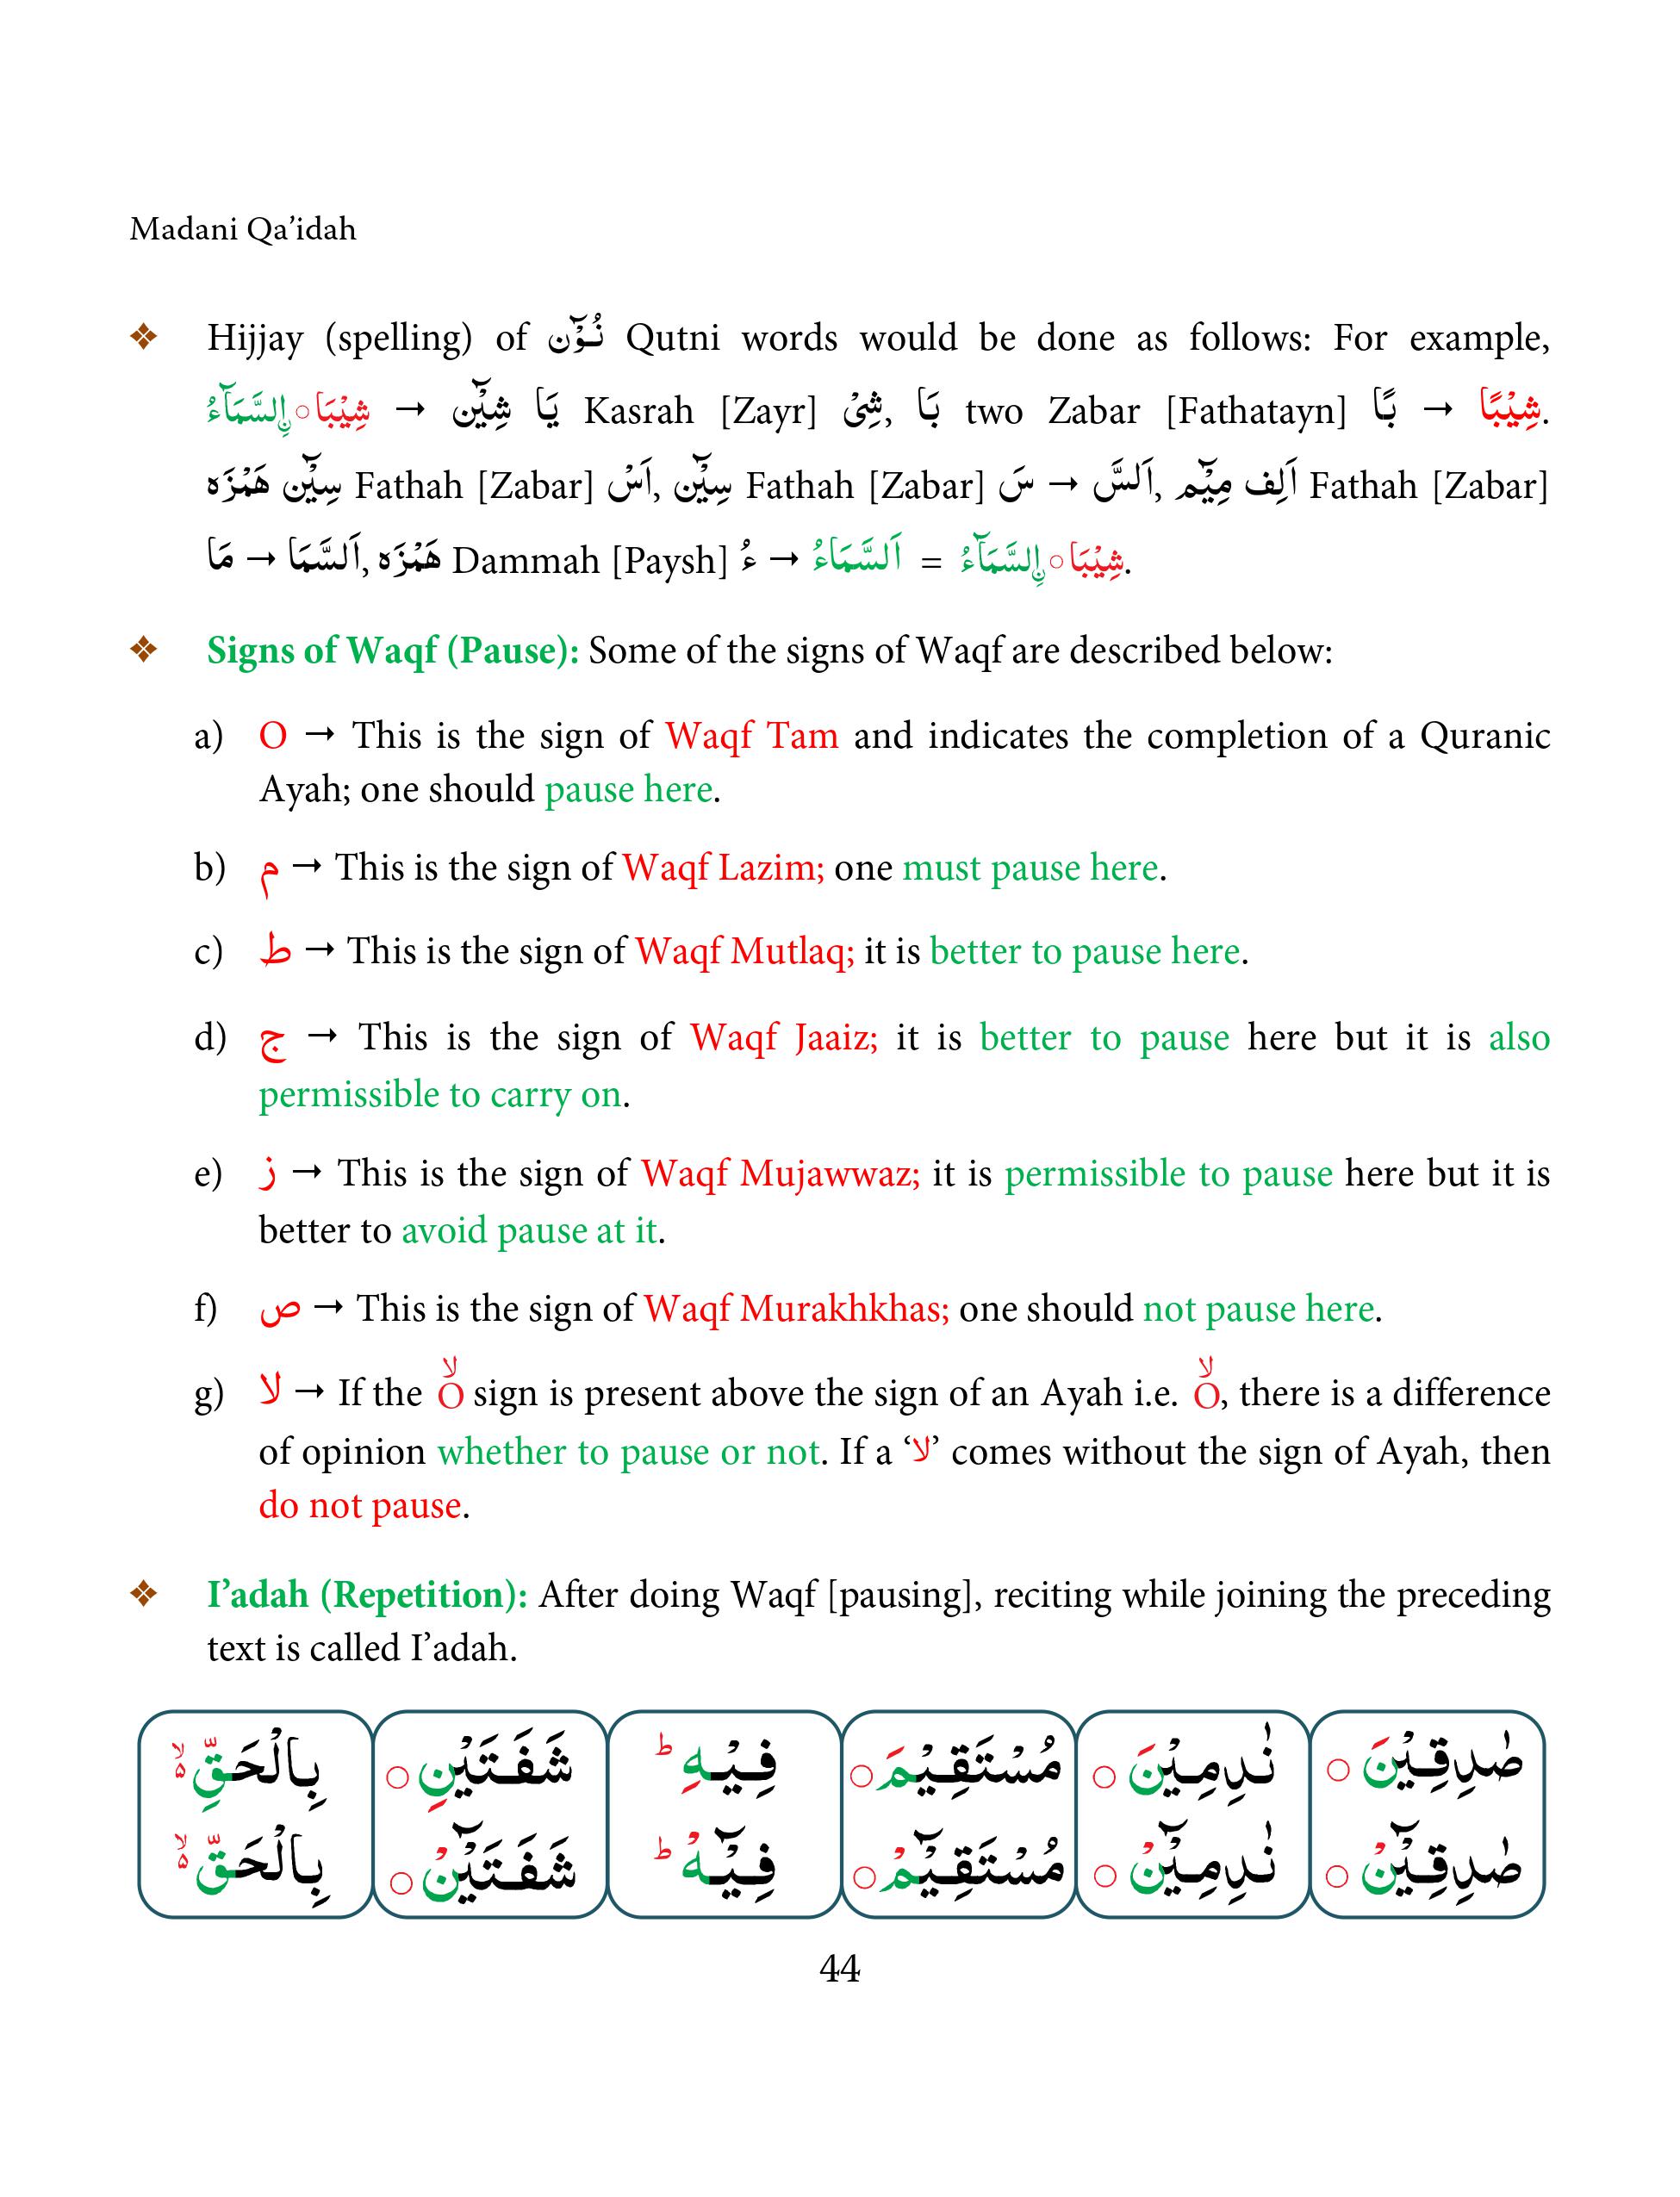 Madani Qa’idah
❖ Hijjay (spelling) of نُوْٓن Qutni words would be done as follows: For example,
شِيْبَا ○ نِ السَّمَآءُ → شِيْٓن يَا Kasrah [Zayr] شِىْ, بَا two Zabar [Fathatayn] بًا → شِيْبًا.
هَمْزَه سِيْٓن Fathah [Zabar] اَسْ, سِيْٓن Fathah [Zabar] سَ → اَلسَّ, مِيْٓم اَلِف Fathah [Zabar]
مَا → اَلسَّمَا, هَمْزَه Dammah [Paysh] ءُ → اَلسَّمَاءُ = شِيْبَا ○ نِ السَّمَآءُ.
❖ Signs of Waqf (Pause): Some of the signs of Waqf are described below:
a) O → This is the sign of Waqf Tam and indicates the completion of a Quranic
Ayah; one should pause here.
b) م → This is the sign of Waqf Lazim; one must pause here.
c) ط → This is the sign of Waqf Mutlaq; it is better to pause here.
d) ج → This is the sign of Waqf Jaaiz; it is better to pause here but it is also
permissible to carry on.
e) ز → This is the sign of Waqf Mujawwaz; it is permissible to pause here but it is
better to avoid pause at it.
f) ص → This is the sign of Waqf Murakhkhas; one should not pause here.
g) لا → If the Oلا sign is present above the sign of an Ayah i.e. Oلا, there is a difference
of opinion whether to pause or not. If a ‘لا’ comes without the sign of Ayah, then
do not pause.
❖ I’adah (Repetition): After doing Waqf [pausing], reciting while joining the preceding
text is called I’adah.
صٰدِقِيْنَ ○ نٰدِمِيْنَ ○ مُسْتَقِيْمَ ○ فِيْهِ ط شَفَتَيْنِ ○ بِالْحَقِّ ۙ
صٰدِقِيْٓنْ ○ نٰدِمِيْٓنْ ○ مُسْتَقِيْٓمْ ○ فِيْٓهْ ط شَفَتَيْٓنْ ○ بِالْحَقّْ ۙ
44